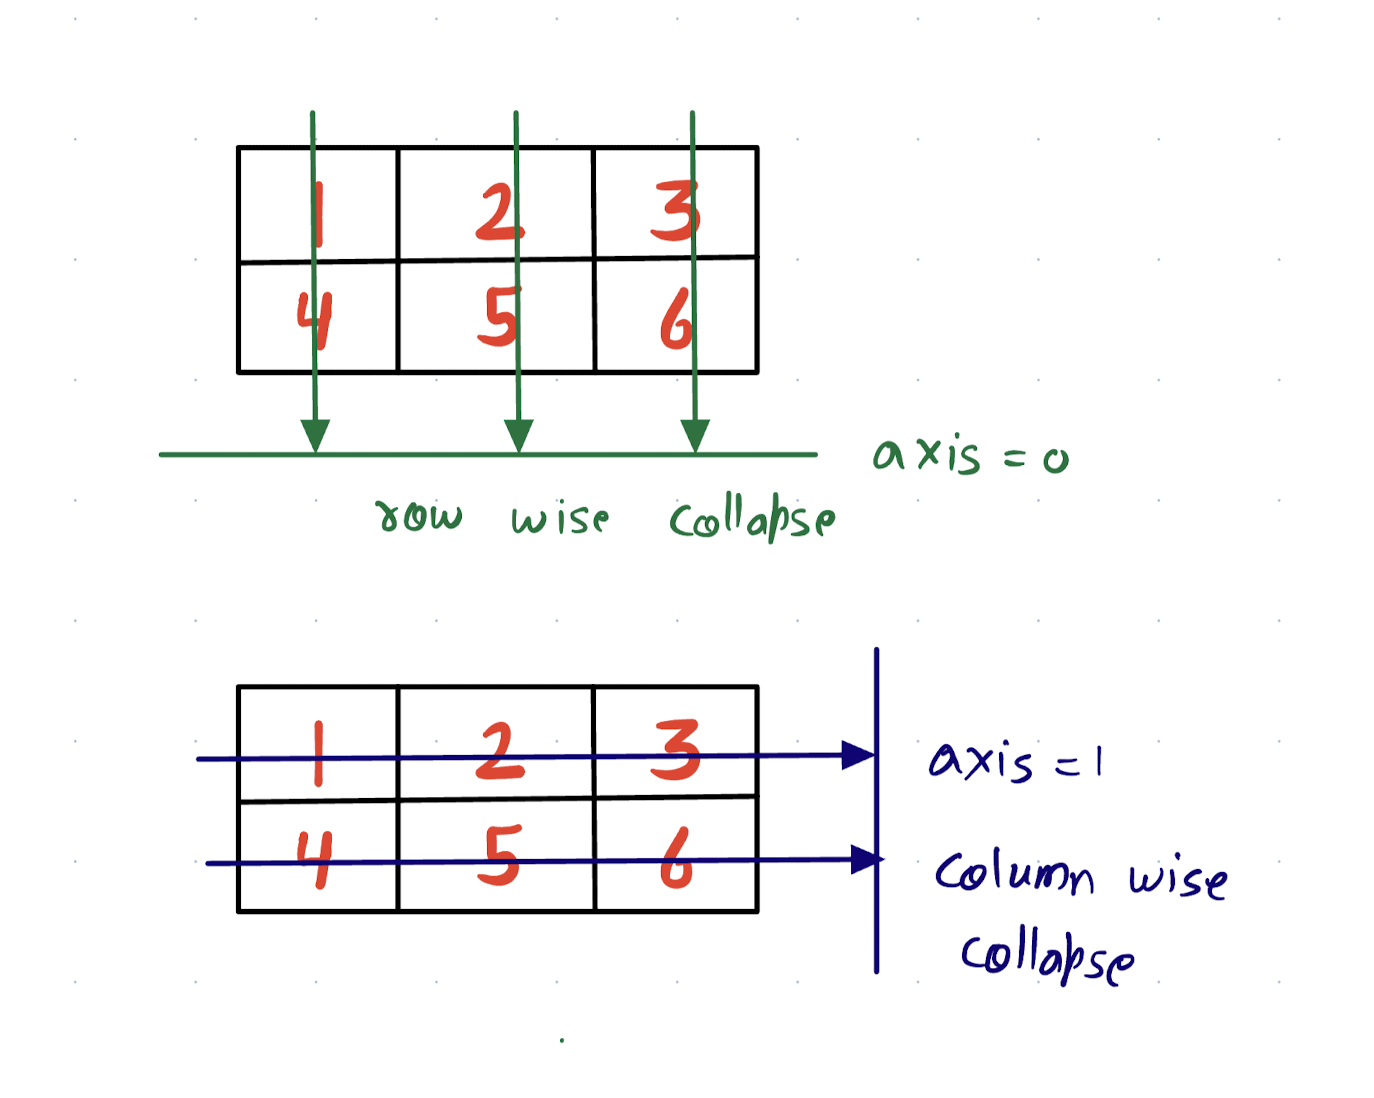 1 2 3
4 5 6
axis = 0
row wise collapse
1 2 3
axis = 1
4 5 6
column wise
collapse